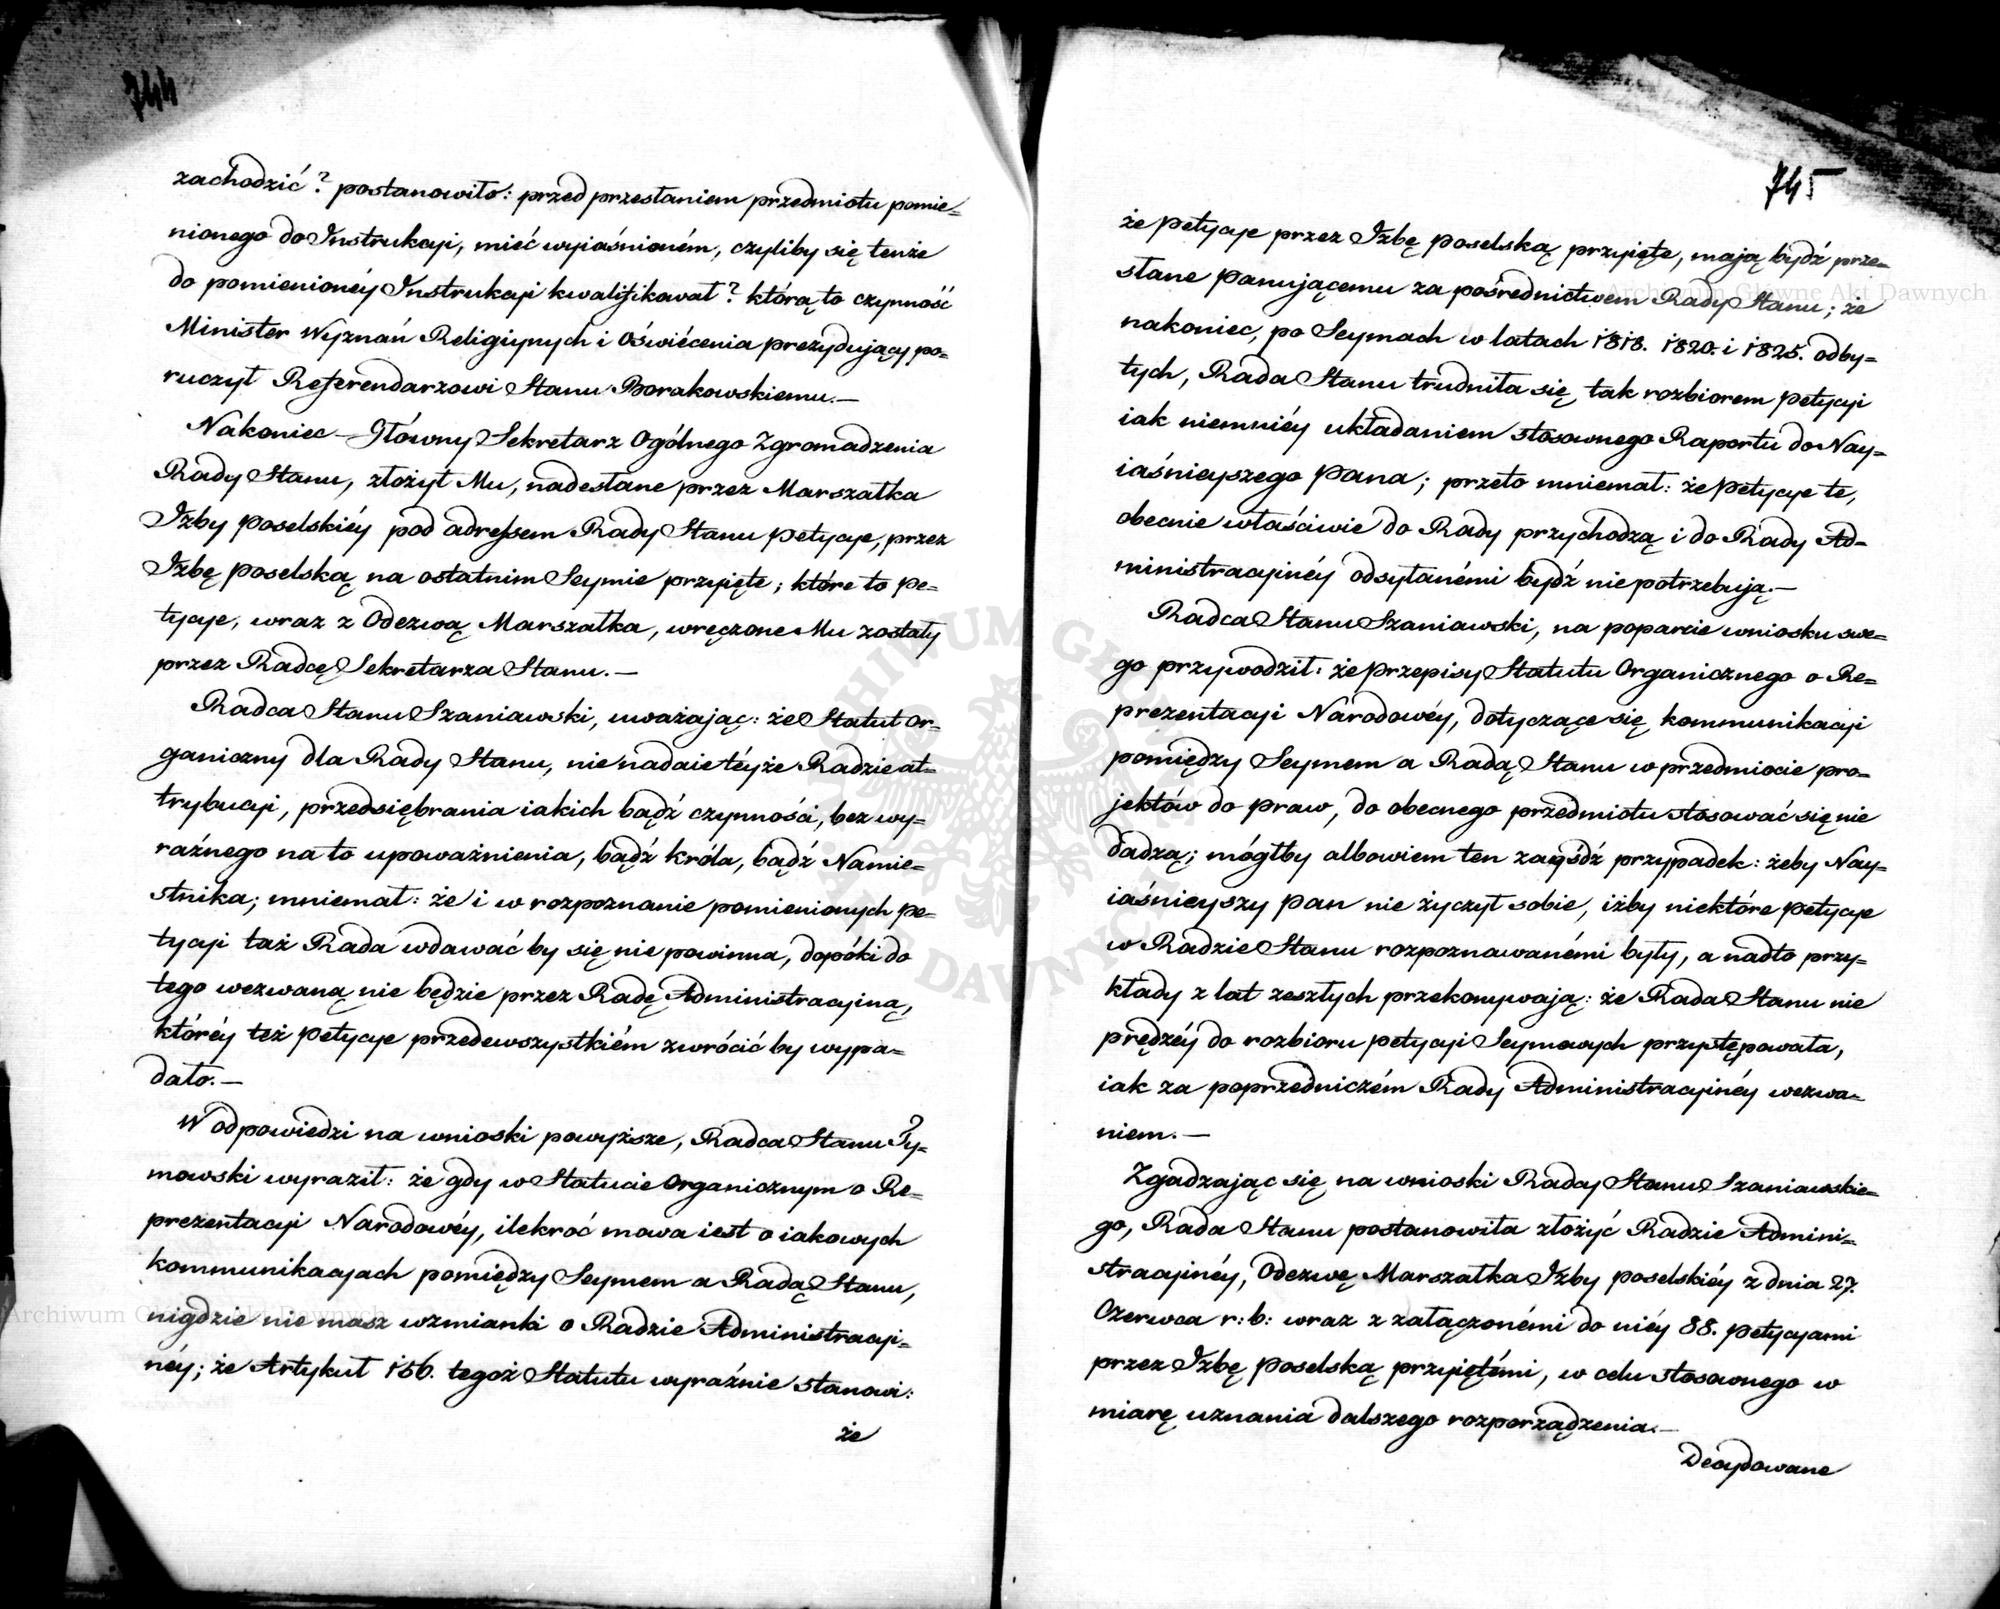 744
zachodzić? postanowiło: przed przesłaniem przedmiotu pomie=
nionego do Instrukcyi, mieć wyiaśnioném, czyliby się tenże
do pomienionéy Instrukcyi kwalifikował? którą to czynność
Minister Wyznań Religiynych i Oświécenia prezydujący po=
ruczył Referendarzowi Stanu Borakowskiemu.—
Nakoniec — Główny Sekretarz Ogólnego Zgromadzenia
Rady Stanu, złożył Mu, nadesłane przez Marszałka
Izby Poselskiéy pod adressem Rady Stanu petycye, przez
Izbę Poselską na ostatnim Seymie przyięte; które to pe=
tycye, wraz z Odezwą Marszałka, wręczone Mu zostały
przez Radcę Sekretarza Stanu.—
Radca Stanu Szaniawski, uważając: że Statut Or=
ganiczny dla Rady Stanu, nie nadaie téyże Radzie at=
trybucyi, przedsiębrania iakich bądź czynności, bez wy=
raźnego na to upoważnienia, bądź Króla, bądź Namie=
stnika; mniemał: że i w rozpoznanie pomienionych pe=
tycyi taż Rada wdawać by się nie powinna, dopóki do
tego wezwaną nie będzie przez Radę Administracyiną,
któréy też petycye przedewszystkiém zwrócić by wypa=
dało.—
W odpowiedzi na wnioski powyższe, Radca Stanu Ty=
mowski wyraził: że gdy w Statucie Organicznym o Re=
prezentacyi Narodowéy, ilekroć mowa iest o iakowych
kommunikacyach pomiędzy Seymem a Radą Stanu,
nigdzie nie masz wzmianki o Radzie Administracyi=
néy; że Artykuł 156. tegoż Statutu wyraźnie stanowi:
że
745
że petycye przez Izbę Poselską przyięte, mają bydź prze=
słane Panującemu za pośrednictwem Rady Stanu; że
nakoniec, po Seymach w latach 1818. 1820. i 1825. odby=
tych, Rada Stanu trudniła się tak rozbiorem petycyi
iak niemniéy układaniem stosownego Raportu do Nay=
iaśnieyszego Pana; przeto mniemał: że petycye te,
obecnie właściwie do Rady przychodzą i do Rady Ad=
ministracyinéy odsyłanémi bydź nie potrzebują.—
Radca Stanu Szaniawski, na poparcie wniosku swe=
go przywodził: że przepisy Statutu Organicznego o Re=
prezentacyi Narodowéy, dotyczące się kommunikacyi
pomiędzy Seymem a Radą Stanu w przedmiocie pro=
jektów do praw, do obecnego przedmiotu stosować się nie
dadzą; mógłby albowiem ten zayśdź przypadek: żeby Nay=
iaśnieyszy Pan nie życzył sobie, iżby niektóre petycye
w Radzie Stanu rozpoznawanémi były, a nadto przy=
kłady z lat zeszłych przekonywają: że Rada Stanu nie
prędzéy do rozbioru petycyi Seymowych przystępowała,
iak za poprzedniczém Rady Administracyinéy wezwa=
niem.—
Zgadzając się na wnioski Radcy Stanu Szaniawskie=
go, Rada Stanu postanowiła złożyć Radzie Admini=
stracyinéy, Odezwę Marszałka Izby Poselskiéy z dnia 27.
Czerwca r: b: wraz z załączonémi do niéy 88. petycyami
przez Izbę Poselską przyiętémi, w celu stosownego w
miarę uznania dalszego rozporządzenia.—
Decydowane
Archiwum Główne Akt Dawnych
Archiwum Główne Akt Dawnych
ARCHIWUM GŁÓWNE AKT DAWNYCH